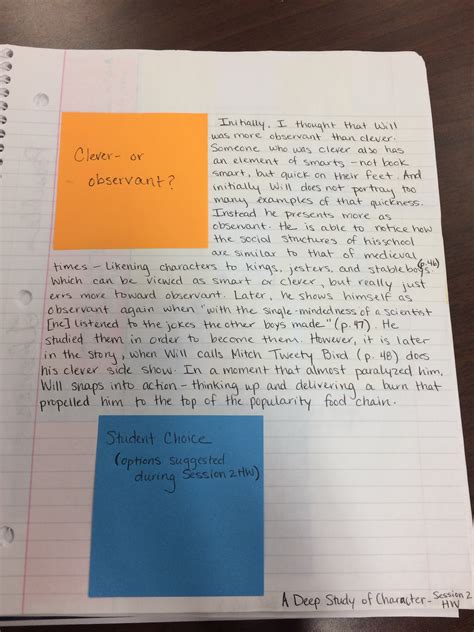 Clever- or
observant?
Initially, I thought that Will
was more observant than clever.
Someone who was clever also has
an element of smarts - not book
smart, but quick on their feet. And
initially Will does not portray too
many examples of that quickness.
Instead he presents more as
observant. He is able to notice how
the social structures of his school
are similar to that of medieval
times - Likening characters to kings, jesters, and stableboys (p.46)
Which can be viewed as smart or clever, but really just
errs more toward observant. Later, he shows himself as
observant again when "with the single-mindedness of a scientist
[he] listened to the jokes the other boys made" (p. 47). He
studied them in order to become them. However, it is later
in the story, when Will calls Mitch Tweety Bird (p. 48) does
his clever side show. In a moment that almost paralyzed him,
Will snaps into action - thinking up and delivering a burn that
propelled him to the top of the popularity food chain.
Student Choice
(options suggested
during Session 2 HW)
A Deep Study of Character - Session 2
HW